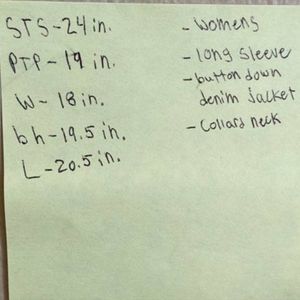 STS-24in.
PTP-19 in.
W-18in.
bh-19.5 in.
L-20.5in.
- Womens
- long sleeve
- button down
denim Jacket
- Collard neck